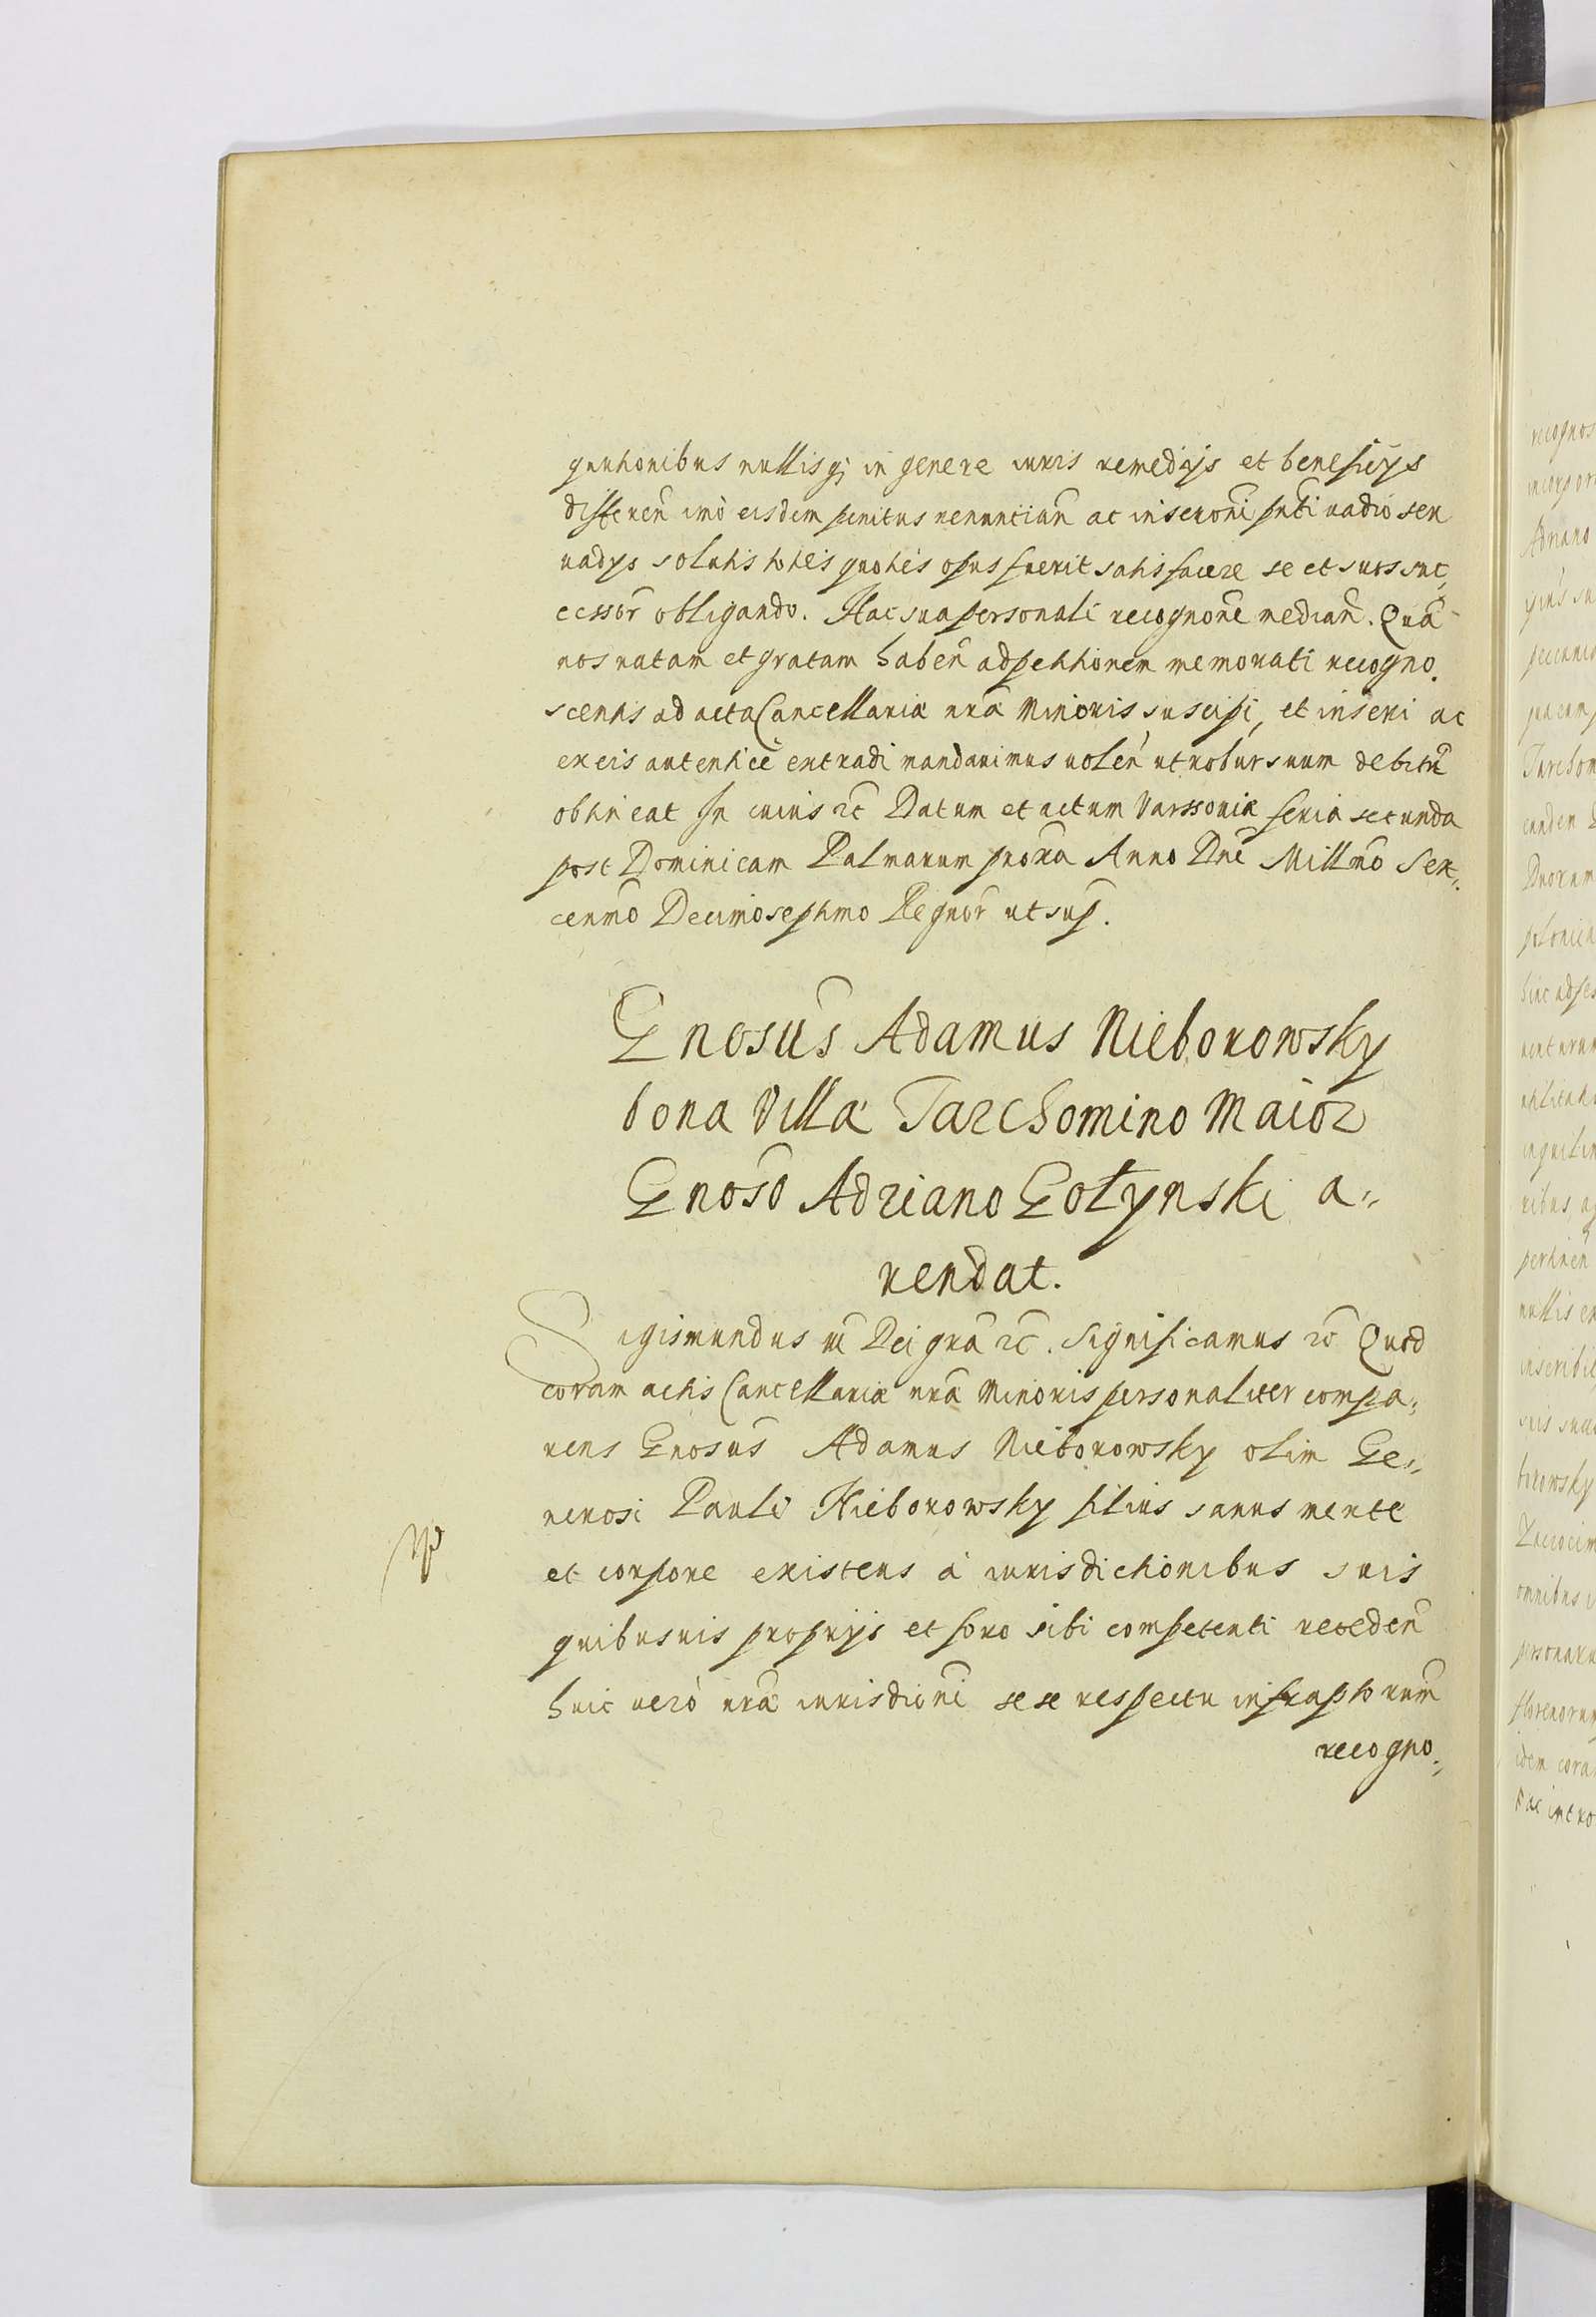 gnitionibus nullisq; in genere iuris remedijs et beneficijs
differen imò eisdem penitus renuntian ac inscriptioni pnti vadio seu
vadijs solutis toties quoties opus fuerit satisfacere se et suos suc,
cessor obligando. Hac sua personali recognone median. Quã
nos ratam et gratam haben ad petitionem memorati recogno,
scentis ad acta Cancellariæ nrã Minoris suscipi, et inseri ac
ex eis autenticè extradi mandavimus volen ut robur suum debitũ
obtineat In cuius rc Datum et actum Varssoviæ feria secunda
post Dominicam Palmarum proxa Anno Dni Millmo Sex,,
cenmo Decimoseptimo Regnor ut sup.
Gnosus Adamus Nieborowsky
bona Villæ Tarchomino Maior
Gnoso Adriano Gołynski a,,
rendat.
Sigismundus III Dei gra rc. Significamus rc Quod
coram actis Cancellariæ nrã Minoris personaliter compa,
rens Gnosus Adamus Nieborowsky olim Ge,,
nerosi Pauli Nieborowsky filius sanus mente
et corpore existens à iurisdictionibus suis
quibusvis proprijs et foro sibi competenti receden
huic verò nrã iurisdioni sese respectu infraptorum
recogno,,
recognos
incorpor
Adriano
Tarchom
eanden
Duorum
polonica
nullis ex
inscribit
borowsky
omnibus
personaru
florenorum
idem cora